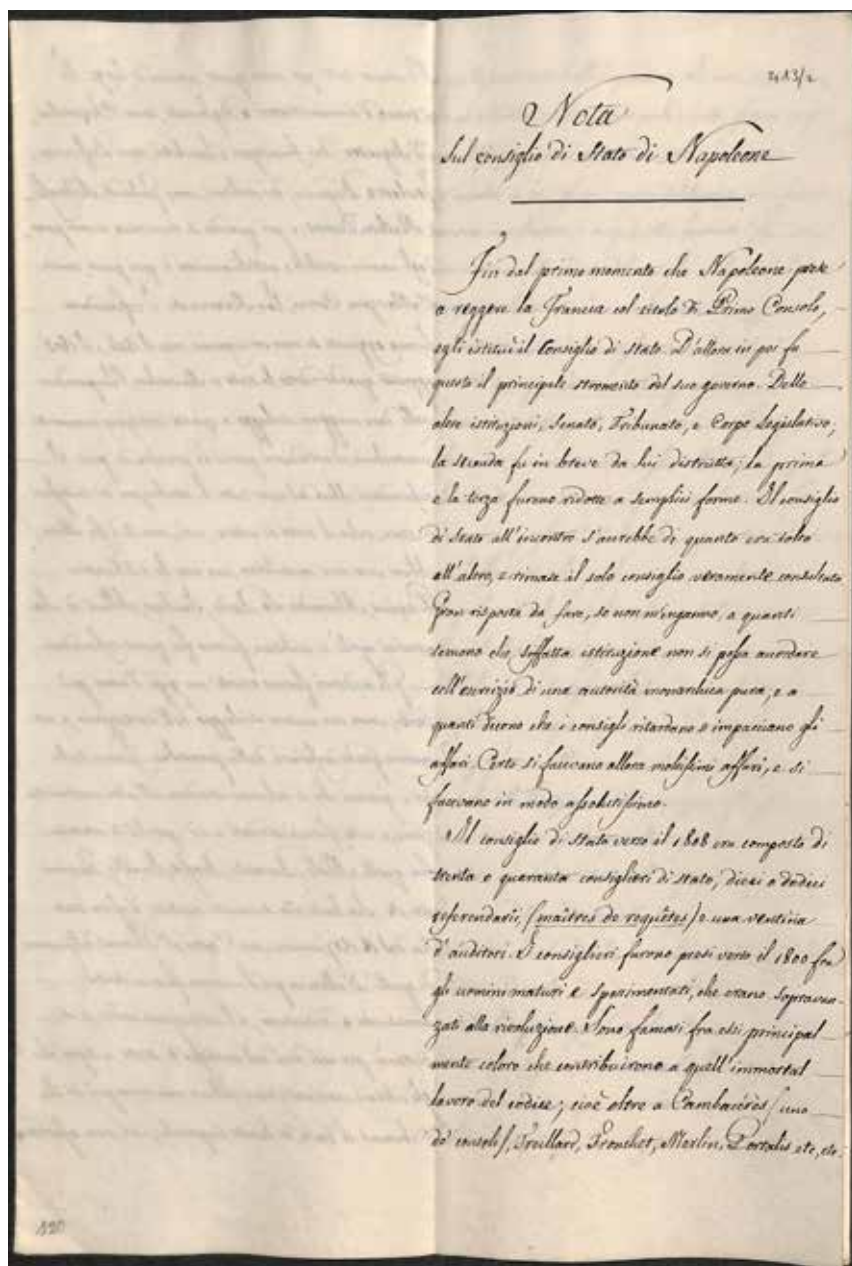 2413/2
Nota
Sul consiglio di Stato di Napoleone
Fin dal primo momento che Napoleone prese
a reggere la Francia col titolo di Primo Consolo,
egli istituì il Consiglio di Stato. D'allora in poi fu
questo il principale stromento del suo governo. Delle
altre istituzioni, Senato, Tribunato, e Corpo Legislativo,
la seconda fu in breve da lui distrutta; la prima
e la terza furono ridotte a semplici forme. Il consiglio
di Stato all'incontro s'accrebbe di quanto era tolto
all'altre, e rimase il solo consiglio veramente consultato.
Gran risposta da fare, se non m'inganno, a quanti
temono che siffatta istituzione non si possa accordare
coll'esercizio di una autorità monarchica pura, e a
quanti dicono che i consigli ritardano e impacciano gli
affari. Certo si facevano allora moltissimi affari, e si
facevano in modo assolutissimo.
Il consiglio di Stato verso il 1808 era composto di
trenta o quaranta consiglieri di stato, dieci o dodici
referendarii, (maîtres de requêtes) e una ventina
d'auditori. I consiglieri furono presi verso il 1800 fra
gli uomini maturi e sperimentati, che erano sopravan-
zati alla rivoluzione. Sono famosi fra essi principal
mente coloro che contribuirono a quell'immortal
lavoro del codice; cioè oltre a Cambacérès (uno
de' consoli), Treillard, Tronchet, Merlin, Portalis etc, etc.
120